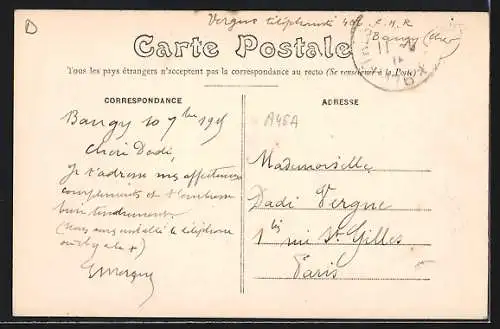 D
Vergne téléphoniste
Baugy (Cher
Carte Postale
Tous les pays étrangers n'acceptent pas la correspondance au recto (Se renseigner à la Poste)
CORRESPONDANCE
ADRESSE
A48A
Baugy 10 7bre
Cheri Dadi,
je t'adresse mes affectueux
compliments et t'embrasse
bien tendrement
(Nous avons installé le téléphone
Mademoiselle
Dadi Vergne
1 bis rue St Gilles
Paris